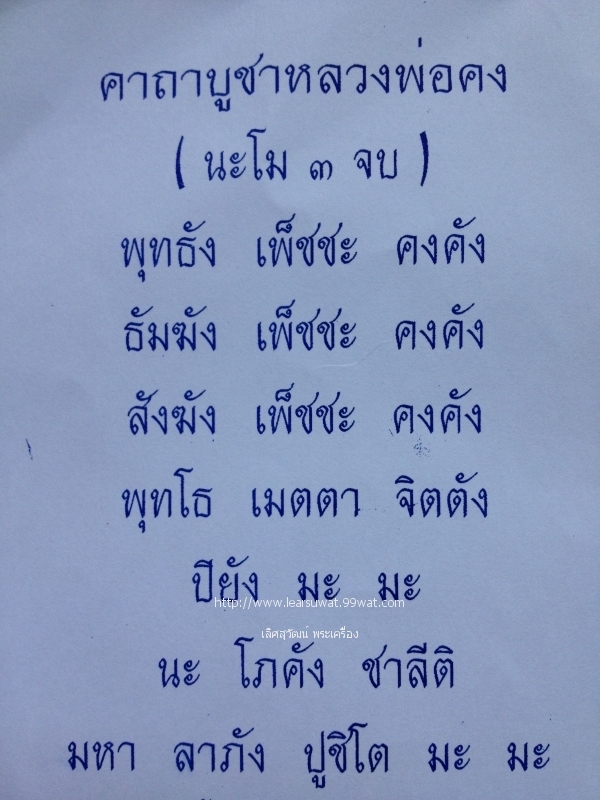 คาถาบูชาหลวงพ่อคง
( นะโม ๓ จบ )
พุทธัง เพ็ชชะ คงคัง
ธัมฆัง เพ็ชชะ คงคัง
สังฆัง เพ็ชชะ คงคัง
พุทโธ เมตตา จิตตัง
ปิยัง มะ มะ
http://www.learsuwat.99wat.com
เลิศสุวัฒน์ พระเครื่อง
นะ โภคัง ชาลีติ
มหา ลาภัง ปูชิโต มะ มะ